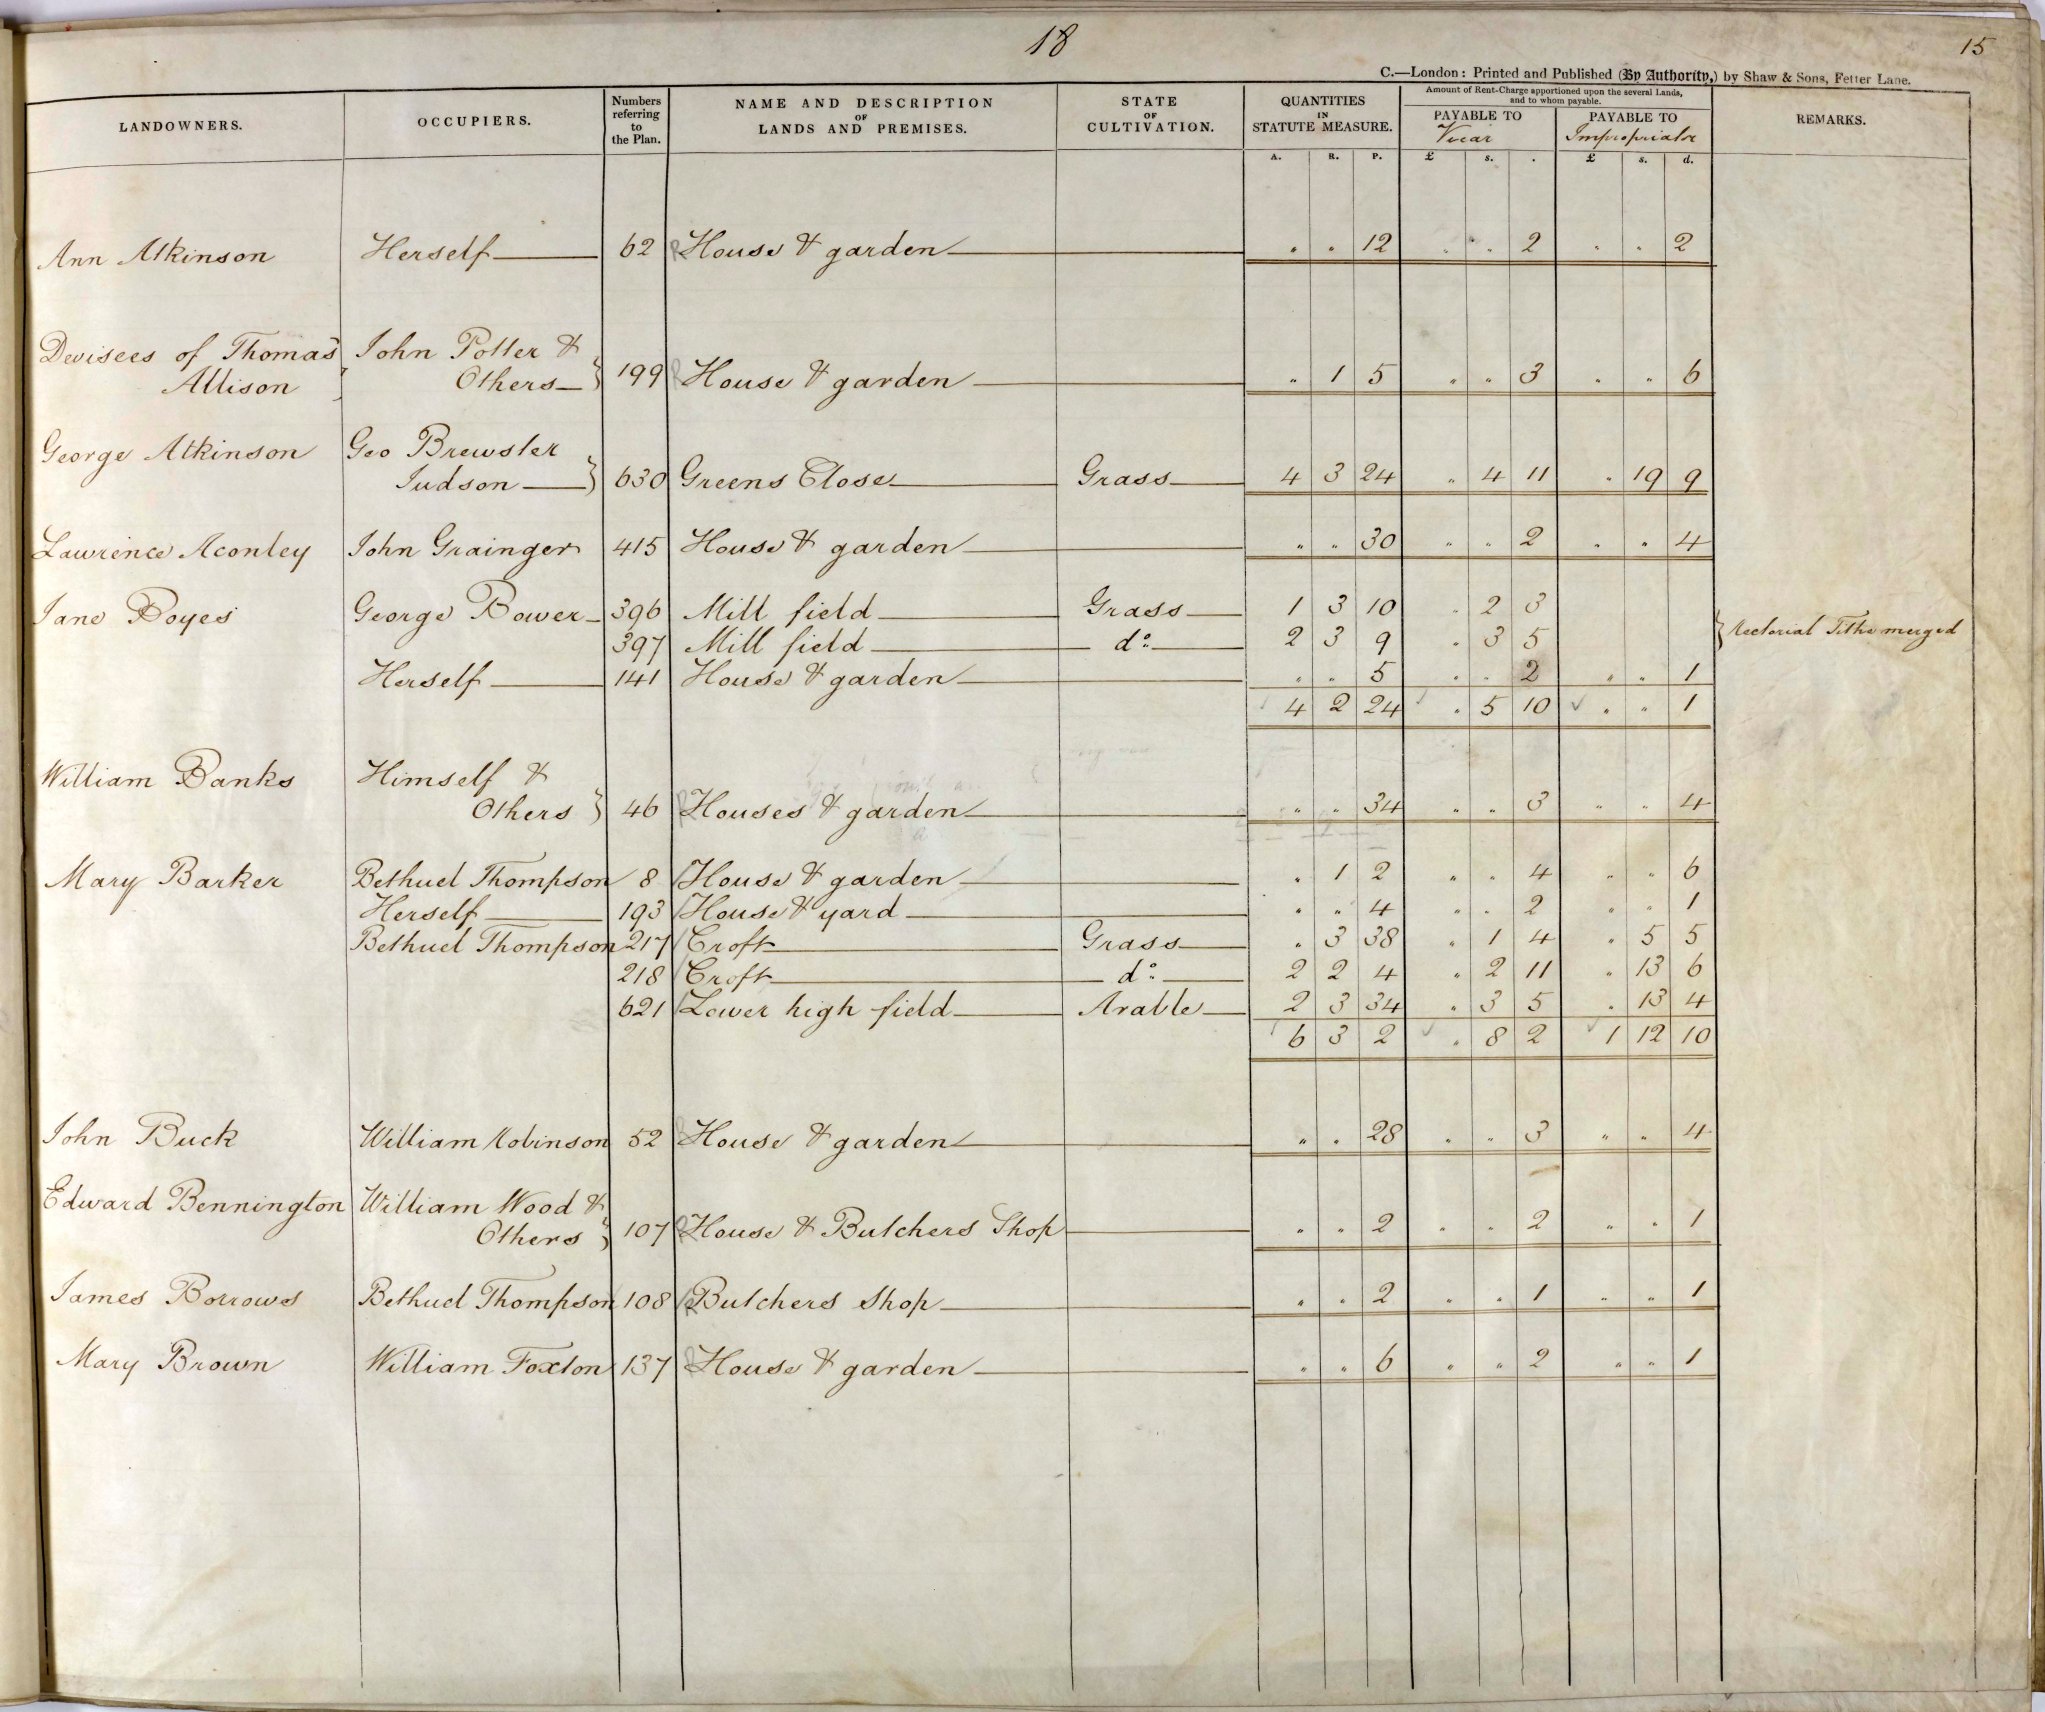 18
15
C.—London: Printed and Published (By Authority,) by Shaw & Sons, Fetter Lane.
LANDOWNERS. OCCUPIERS. Numbers referring to the Plan. NAME AND DESCRIPTION OF LANDS AND PREMISES. STATE OF CULTIVATION. QUANTITIES IN STATUTE MEASURE. Amount of Rent-Charge apportioned upon the several Lands, and to whom payable. PAYABLE TO Vicar PAYABLE TO Impropriator REMARKS.
A. R. P. £ s. . £ s. d.
Ann Atkinson Herself 62 House & garden " " 12 " " 2 " " 2
Devisees of Thomas John Potter &
Allison Others 199 House & garden " 1 5 " " 3 " " 6
George Atkinson Geo Brewster
Judson 630 Greens Close Grass 4 3 24 " 4 11 " 19 9
Lawrence Aconley John Grainger 415 House & garden " " 30 " " 2 " " 4
Jane Boyes George Bower 396 Mill field Grass 1 3 10 " 2 3
397 Mill field do 2 3 9 " 3 5 } Rectorial Tithe merged
Herself 141 House & garden " " 5 " " 2 " " 1
4 2 24 " 5 10 " " 1
William Banks Himself &
Others 46 Houses & garden " " 34 " " 3 " " 4
Mary Barker Bethuel Thompson 8 House & garden " 1 2 " " 4 " " 6
Herself 193 House & yard " " 4 " " 2 " " 1
Bethuel Thompson 217 Croft Grass " 3 38 " 1 4 " 5 5
218 Croft do 2 2 4 " 2 11 " 13 6
621 Lower high field Arable 2 3 34 " 3 5 " 13 4
6 3 2 " 8 2 1 12 10
John Buck William Robinson 52 House & garden " " 28 " " 3 " " 4
Edward Bennington William Wood &
Others 107 House & Butchers Shop " " 2 " " 2 " " 1
James Borrows Bethuel Thompson 108 Butchers Shop " " 2 " " 1 " " 1
Mary Brown William Foxton 137 House & garden " " 6 " " 2 " " 1